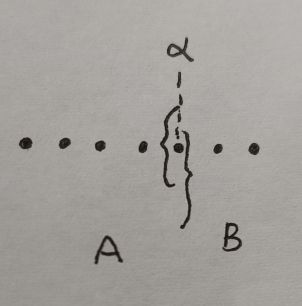 α
A B